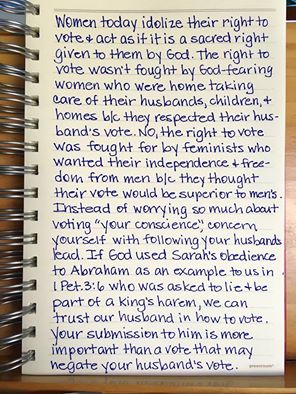 Women today idolize their right to
vote & act as if it is a sacred right
given to them by God. The right to
vote wasn't fought by God-fearing
women who were home taking
care of their husbands, children, &
homes b/c they respected their hus-
band's vote. NO, the right to vote
was fought for by feminists who
wanted their independence & free-
dom from men b/c they thought
their vote would be superior to men's.
Instead of worrying so much about
voting "your conscience", concern
yourself with following your husbands
lead. If God used Sarah's obedience
to Abraham as an example to us in
1 Pet. 3:6 who was asked to lie & be
part of a king's harem, we can
trust our husband in how to vote.
Your submission to him is more
important than a vote that may
negate your husband's vote.